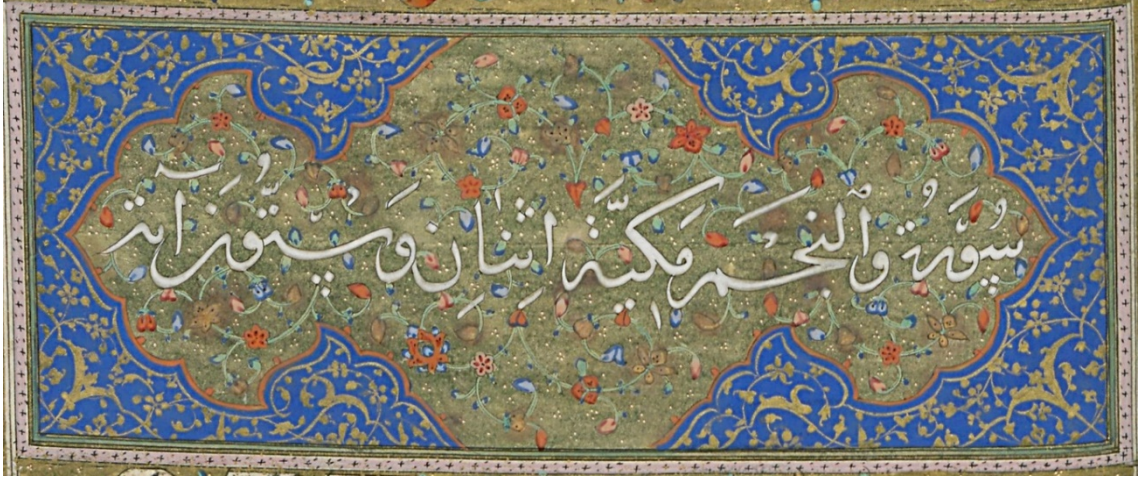 سُورَةُ وَالْنَجْم مَكيَّة اِثنَانِ وَسِتُّونَ اٰية